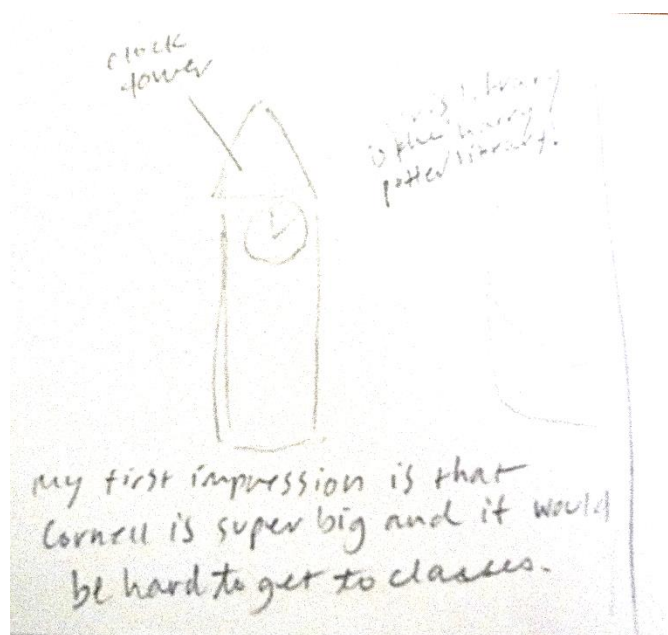 clock
tower
library
is the harry
potter library!
my first impression is that
Cornell is super big and it would
be hard to get to classes.